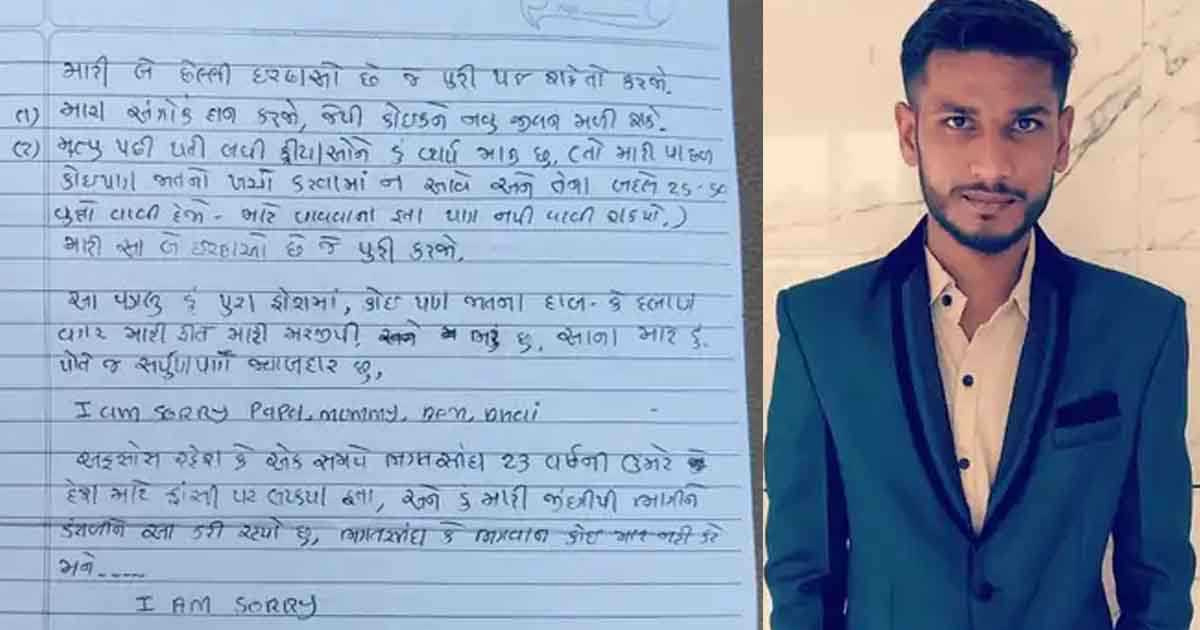 મારી બે છેલ્લી ઇચ્છાઓ છે જે પુરી થઇ શકેતો કરજો.
(૧) મારા અંગોકં દાન કરજો, જેથી કોઇકને નવુ જીવન મળી શકે.
(૨) મૃત્યુ પછી થતી બધી ક્રીયાઓને હું વ્યર્થ માનુ છુ, (તો મારી પાછળ
કોઇપણ જાતનો ખર્ચો કરવામાં ન આવે અને તેના બદલે 25-50
વૃક્ષો વાવી દેજો - માટે વાવવાના હતા પણ નથી વાવી શક્યો.)
મારી આ બે ઇચ્છાઓ છે જે પુરી કરજો.
આ પગલુ હું પુરા હોશમાં, કોઇ પણ જાતના દાબ- કે દબાણ
વગર મારી રીતે મારી મરજીથી ભરુ છુ, આના માટે હું
પોતે જ સર્પુણપણે જવાબદાર છુ,
I am SORRY Papa, mummy, Ben, Bhai
અફસોસ રહેશે કે એક સમયે ભગતસીંઘ 23 વર્ષની ઉમરે
દેશ માટે ફાંસી પર લટક્યા હતા, અને હું મારી જીંદગીથી ભાગીને
કંટાળીને આ કરી રહ્યો છુ, ભગતસીંઘ કે ભગવાન કોઇ માફ નહી કરે
મને.....
I AM SORRY